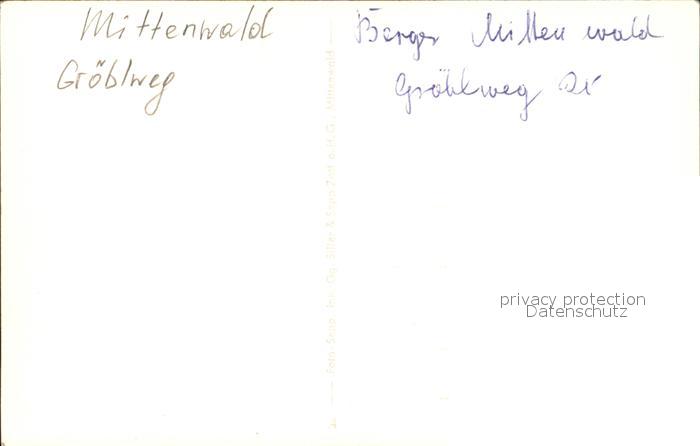 Mittenwald
Gröblweg
Berger Mittenwald
Gröblweg
Foto-Sepp, Inh. Gg. Sitter & Sepp Zoll o.H.G., Mittenwald
privacy protection
Datenschutz